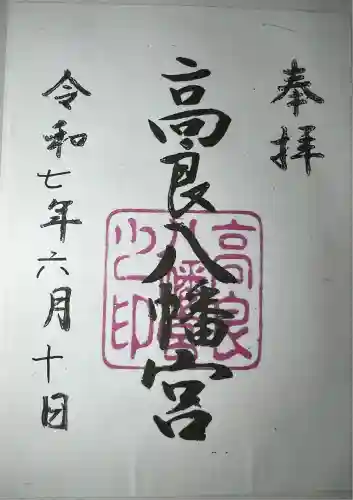 奉拝
高良八幡宮
令和七年六月十日
高良
八幡宮
之印